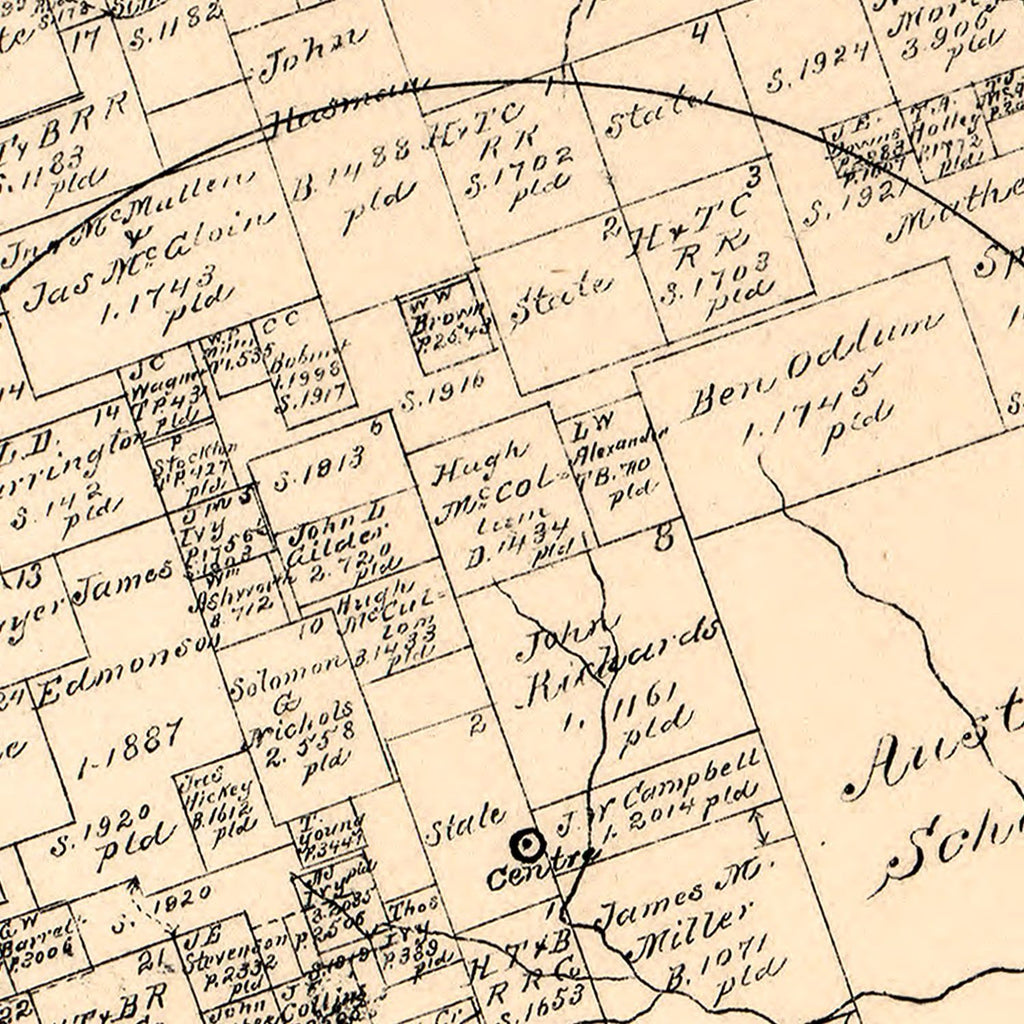 17
S.1182
John
Hasman
4
State
S.1924
3.906
pld
T & B R R
S.1183
pld
1
H & T C
R R
S.1702
pld
B.1488
pld
J E.
T.A.
Holley
P.1772
pld
S.1921
Jno McMullen
&
Jas McGloin
1.1743
pld
3
H & T C
R R
S.1703
pld
2
State
W W
Brown
P.2543
S.1916
Ben Odlum
1.1745
pld
C C
1.1998
S.1917
J C
14
14
pld
L.D.
S.142
pld
P
Stockton
pld
6
S.1813
Hugh
McCol-
lum
D.1434
pld
L W
Alexander
T B.70
pld
8
J M S
Ivy
P.1756
Wm
Ashworth
B.712
John L
Gilder
2.720
pld
Hugh
McCul-
lom
B.1433
pld
13
James
Edmonson
1-1887
24
10
Solomon
G
Nichols
2.558
pld
John
Richards
1.1161
pld
2
State
J. W Campbell
1.2014 pld
Centre
Aust
Scho
S.1920
pld
Jas
Hickey
B.1612
pld
T.
Young
P.3447
pld
Ivy
B.2085
P.2506
S.1920
G W
P.2006
21
J E
Stevenson
P.2332
pld
Thos
Ivy
P.389
pld
1
H T & B
R R Co
S.1653
James M.
Miller
B.1071
pld
22
T & B R
John
Collins